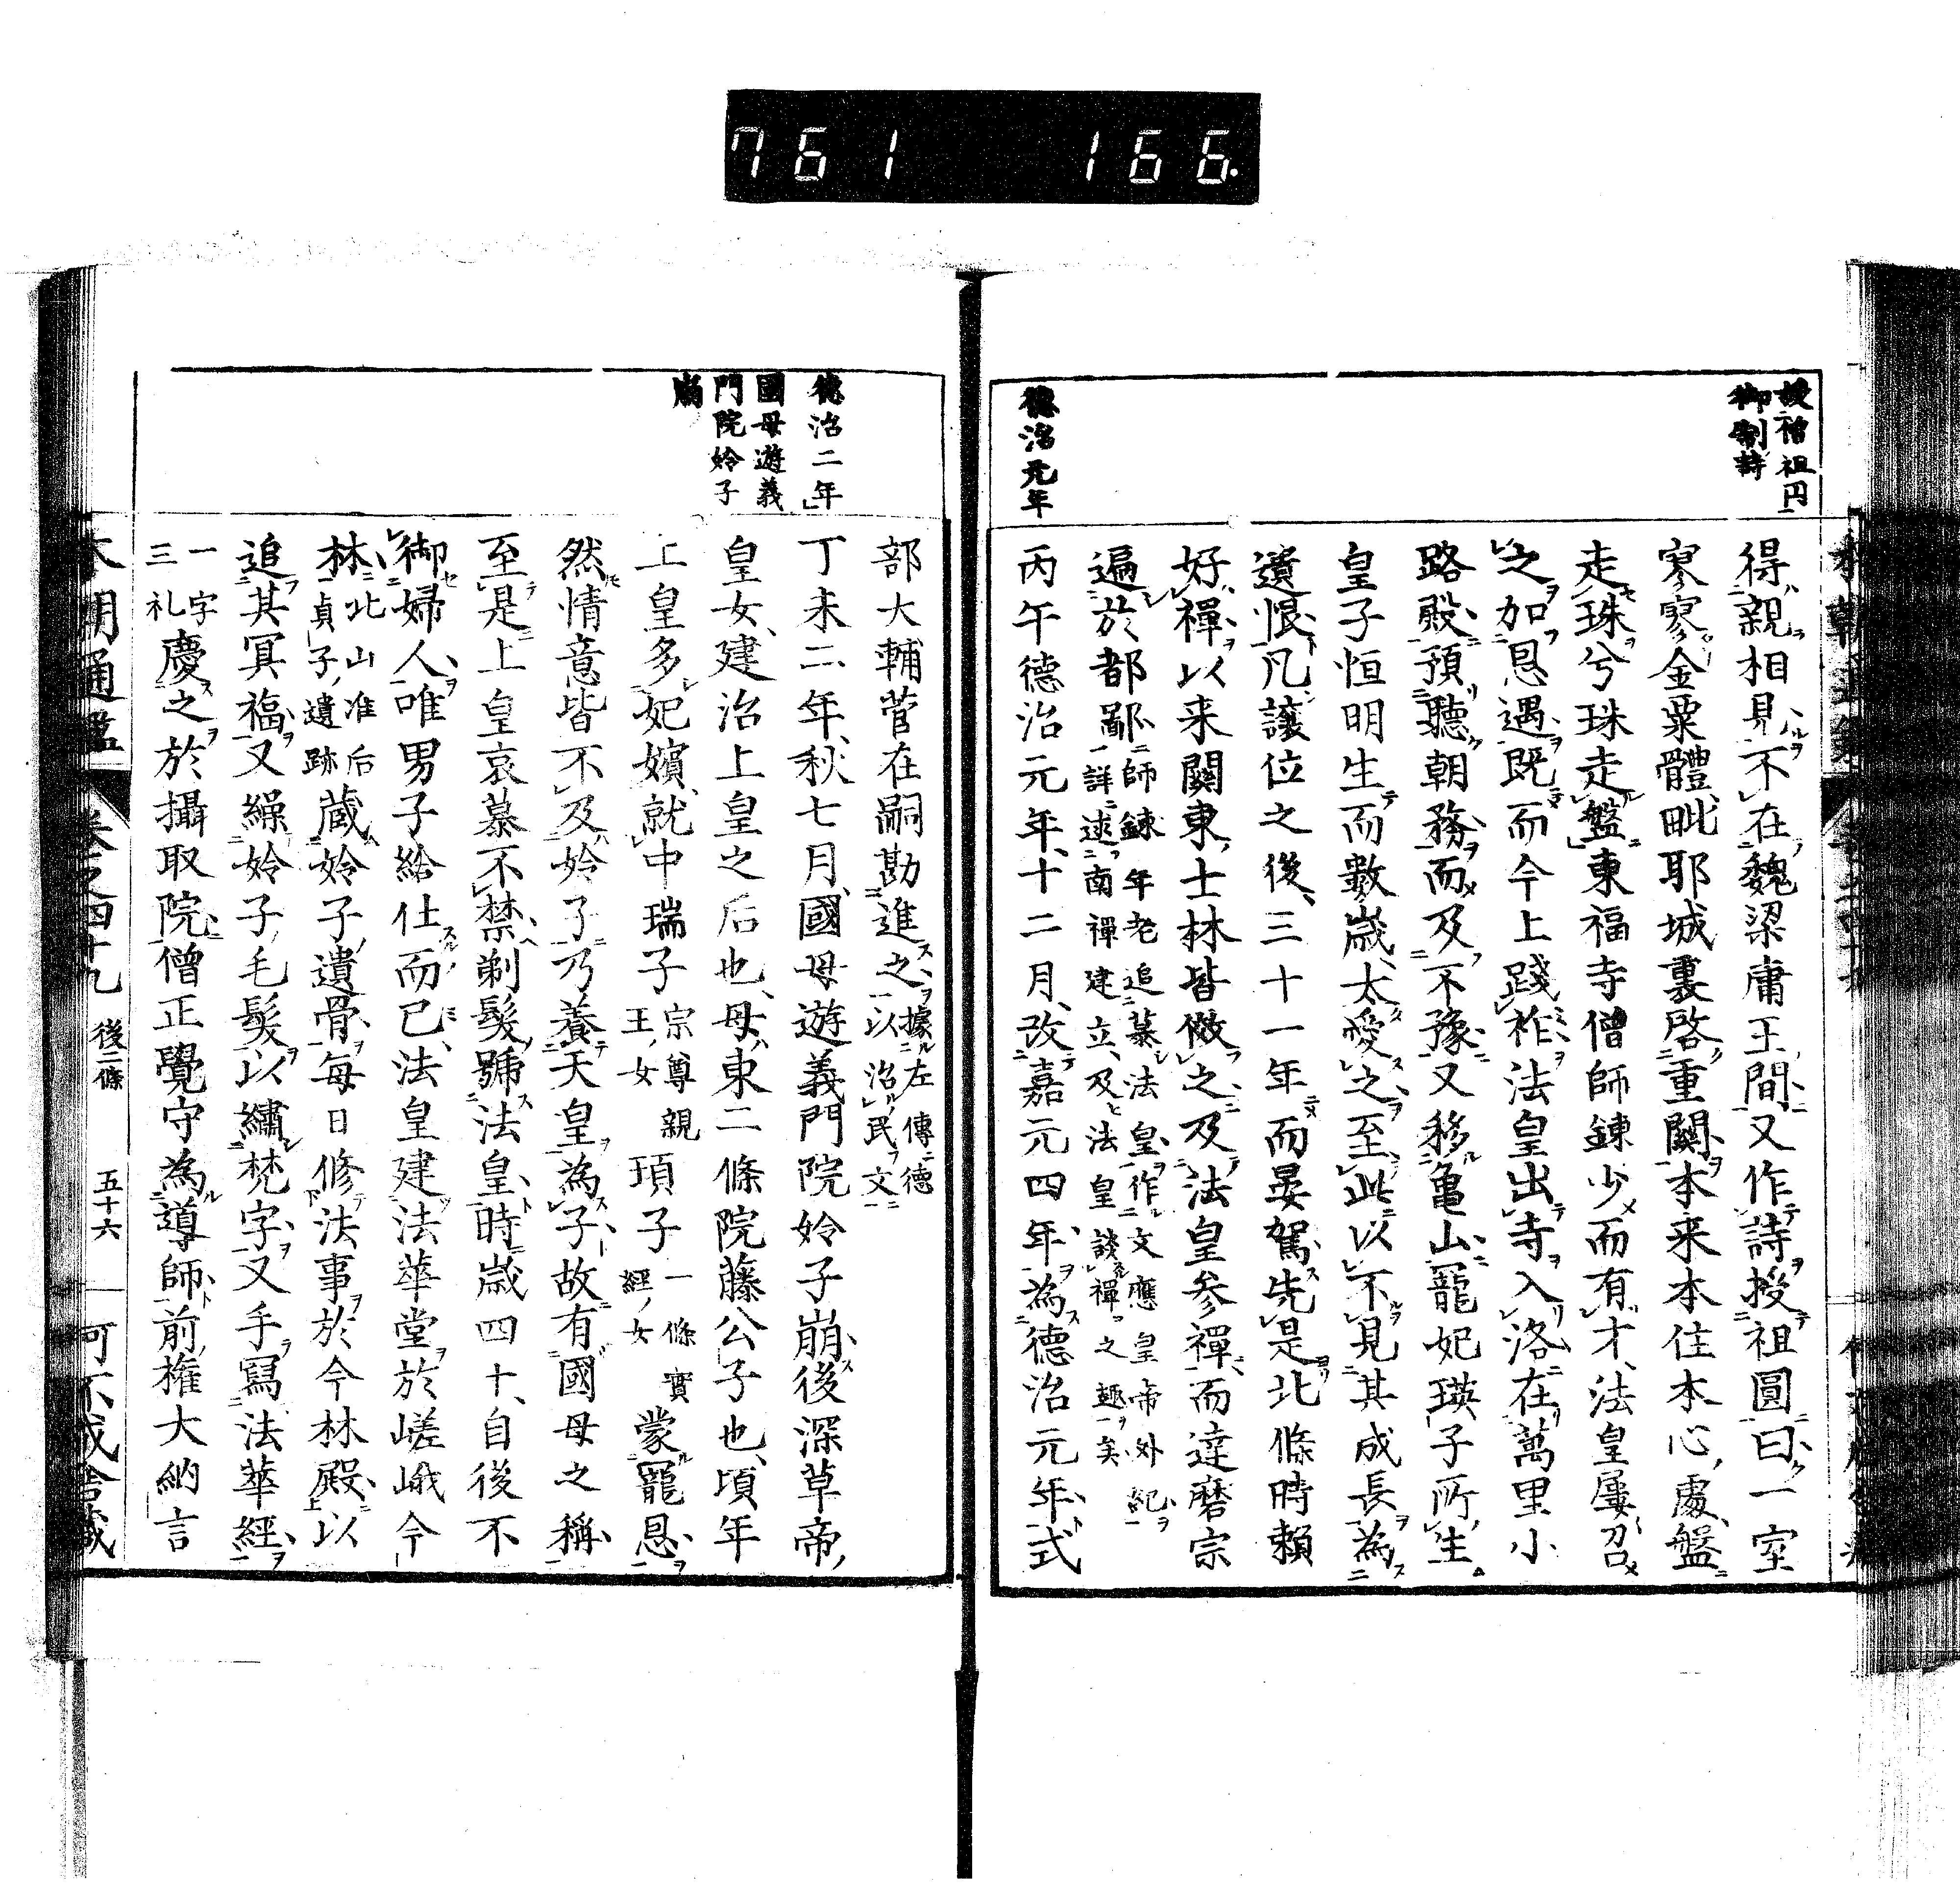 761 166.
授僧祖円
御制詩
得親相見不在魏梁庸王間又作詩授祖圓曰一室
寥寥金粟體毗耶城裏啓重關本来本住本心處盤
走珠兮珠走盤東福寺僧師鍊少而有才法皇屢召
之加恩遇既而今上踐祚法皇出寺入洛在萬里小
路殿預聽朝務而及不豫又移亀山寵妃瑛子所生
皇子恒明生而數歳太愛之至此以不見其成長為
遺恨凡讓位之後三十一年而晏駕先是北條時頼
好禪以来關東士林皆倣之及法皇参禪而達磨宗
遍於都鄙師錬年老追慕法皇作文應皇帝外紀
詳述南禪建立及法皇談禪之趣矣
德治元年
丙午德治元年十二月改嘉元四年為德治元年式
部大輔菅在嗣勘進之據左傳德
以治民文
德治二年
國母遊義
門院姈子
崩
丁未二年秋七月國母遊義門院姈子崩後深草帝
皇女建治上皇之后也母東二條院藤公子也頃年
上皇多妃嬪就中瑞子宗尊親
王女頊子一條實
經女蒙寵恩
然情意皆不及姈子乃養天皇為子故有國母之稱
至是上皇哀慕不禁剃髮號法皇時歳四十自後不
御婦人唯男子給仕而已法皇建法華堂於嵯峨今
林北山准后
貞子遺跡蔵姈子遺骨毎日修法事於今林殿以
追其冥福又繰姈子毛髮以繡梵字又手冩法華經
一字
三礼慶之於攝取院僧正覺守為導師前權大納言
本朝通鑑 卷之四十九 後二條 五十六